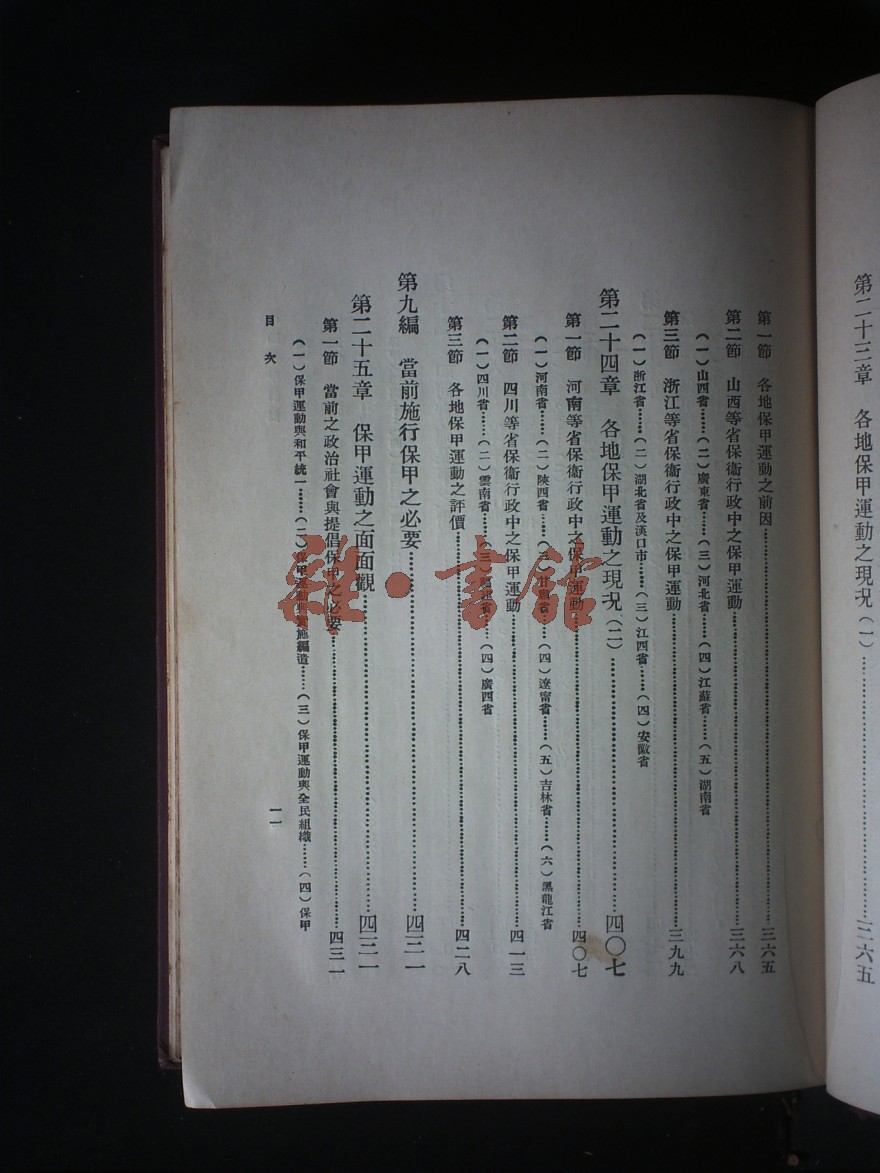 第二十三章　各地保甲運動之現況（一）……三六五
第一節　各地保甲運動之前因……三六五
第二節　山西等省保衞行政中之保甲運動……三六八
（一）山西省……（二）廣東省……（三）河北省……（四）江蘇省……（五）湖南省
第三節　浙江等省保衞行政中之保甲運動……三九九
（一）浙江省……（二）湖北省及漢口市……（三）江西省……（四）安徽省
第二十四章　各地保甲運動之現況（二）……四〇七
第一節　河南等省保衞行政中之保甲運動……四〇七
（一）河南省……（二）陝西省……（三）甘肅省……（四）遼甯省……（五）吉林省……（六）黑龍江省
第二節　四川等省保衞行政中之保甲運動……四一三
（一）四川省……（二）雲南省……（三）福建省……（四）廣西省
第三節　各地保甲運動之評價……四二八
第九編　當前施行保甲之必要……四三一
第二十五章　保甲運動之面面觀……四三一
第一節　當前之政治社會與提倡保甲之必要……四三一
（一）保甲運動與和平統一……（二）保甲運動與實施編遣……（三）保甲運動與全民組織……（四）保甲
目次
一一
雜·書館